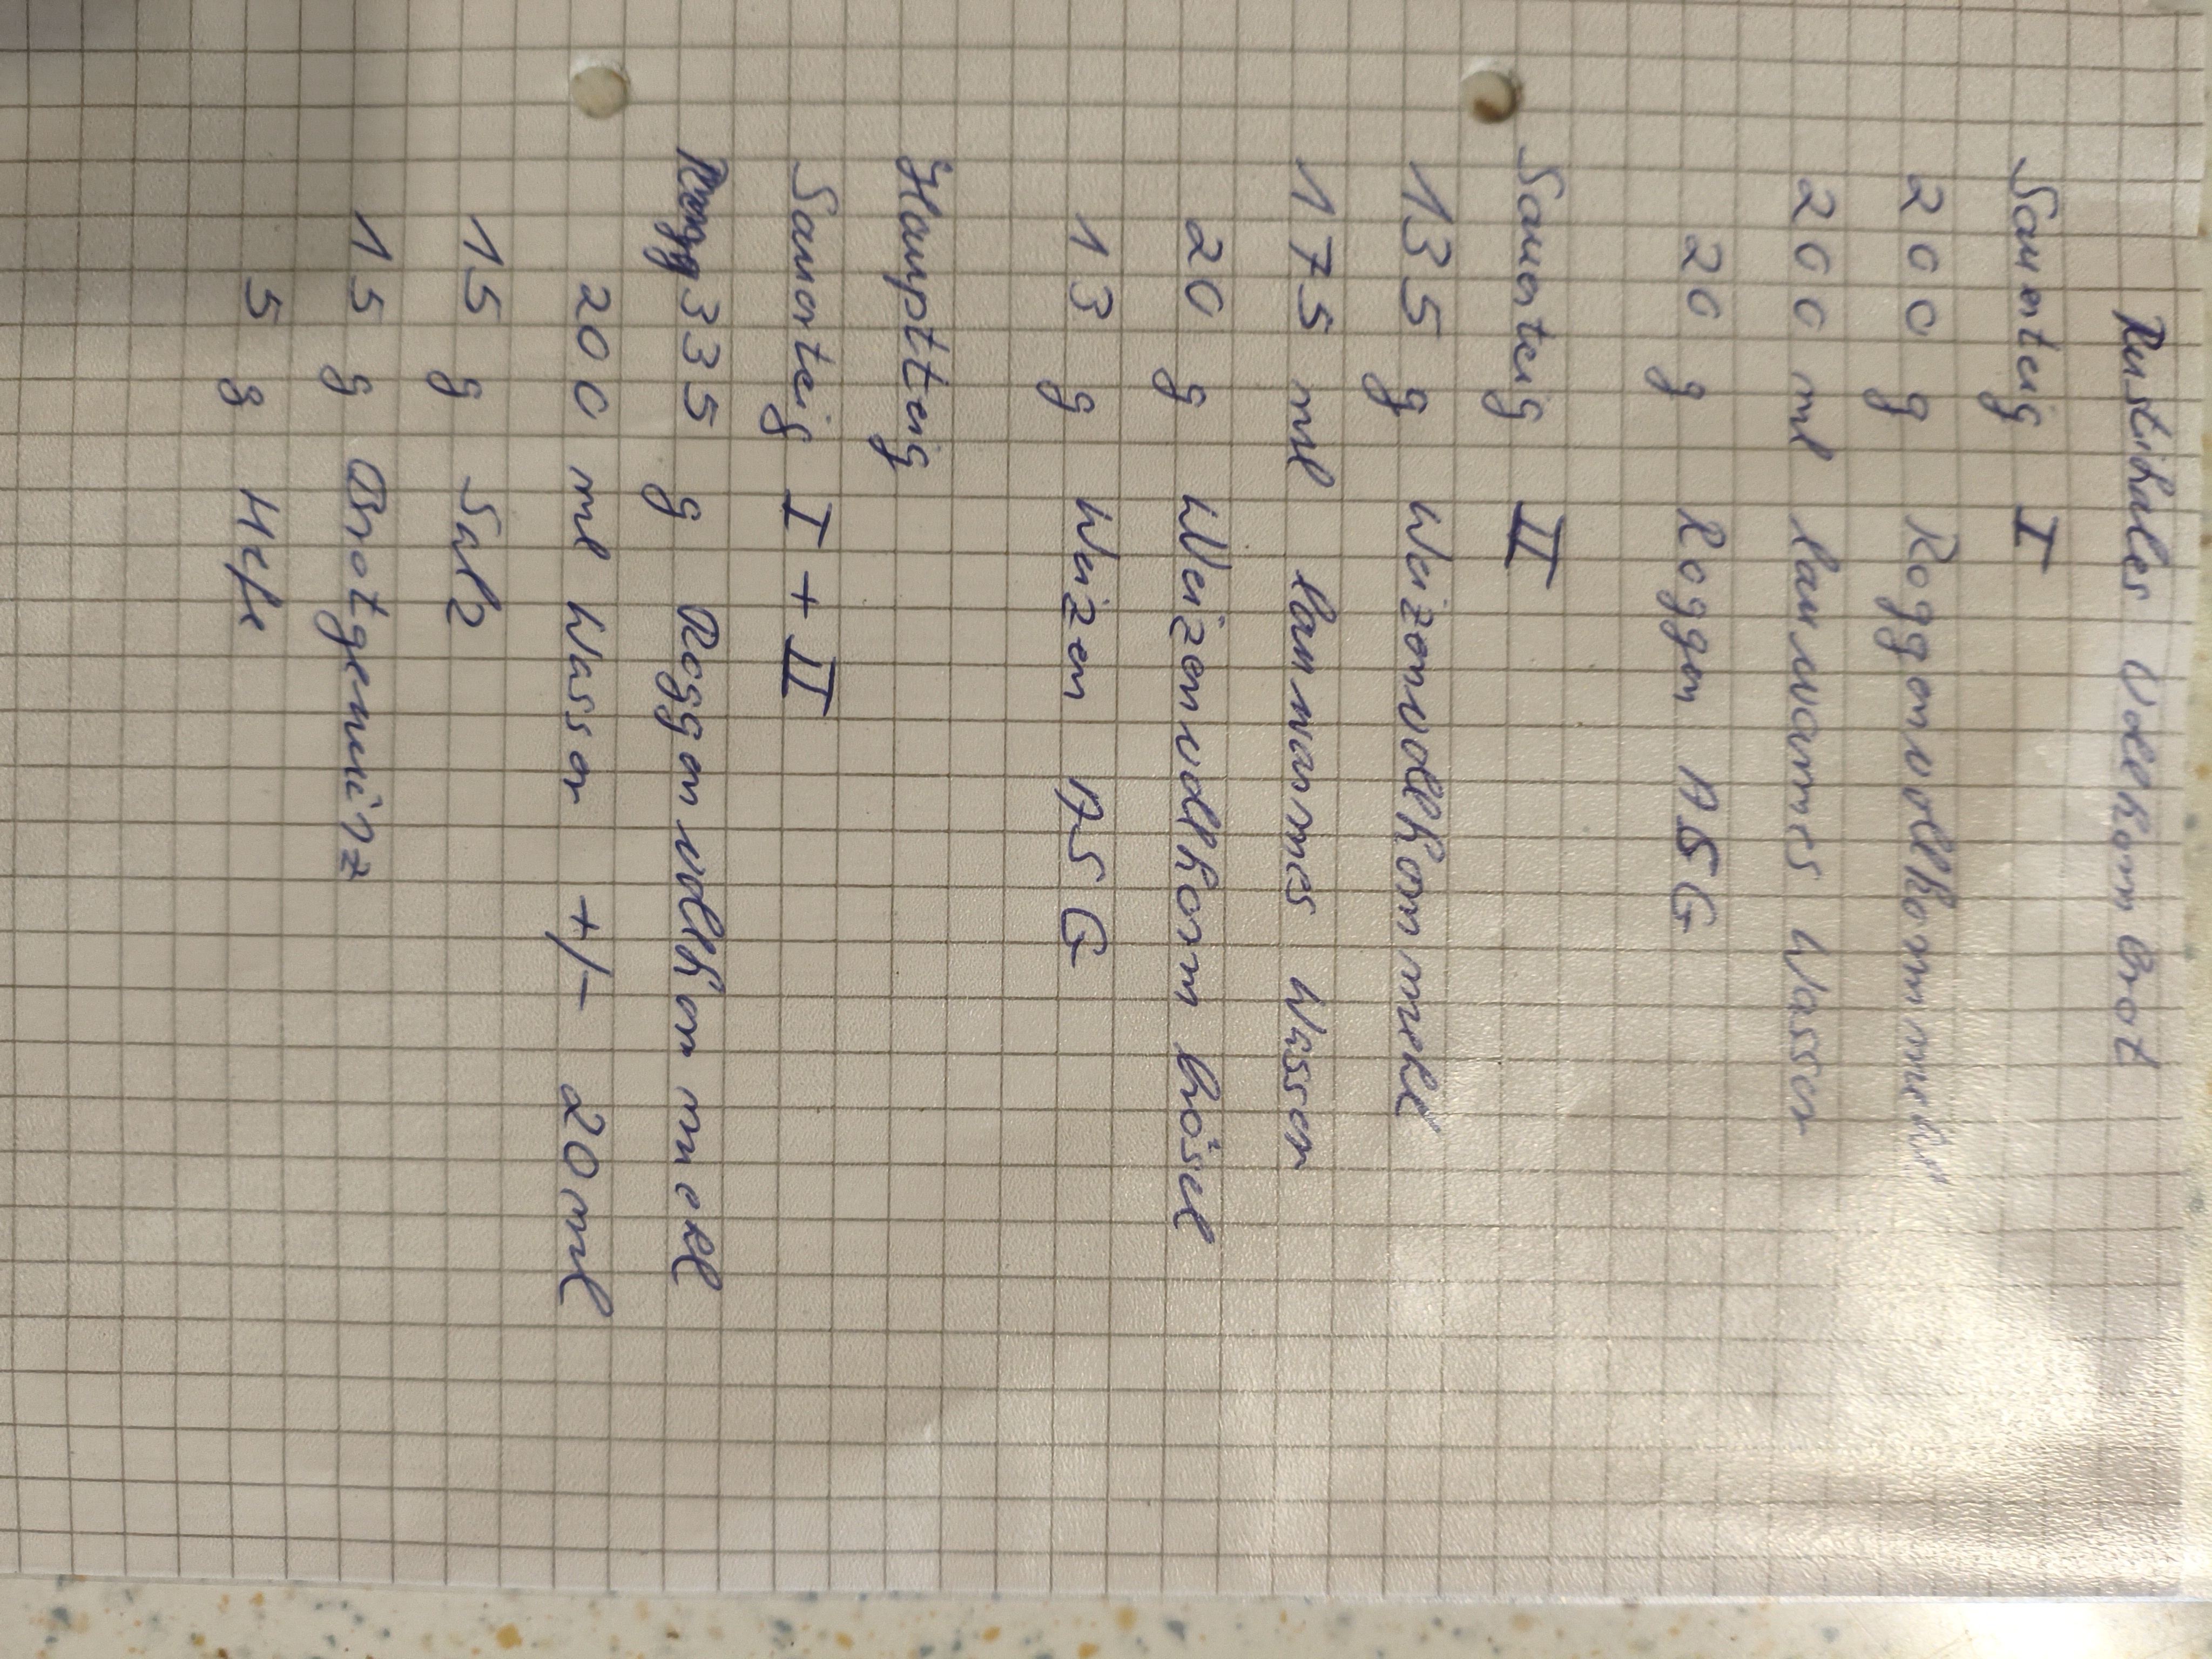 Rustikales Vollkornbrot
Sauerteig I
200 g Roggenvollkornmehl
200 ml lauwarmes Wasser
20 g Roggen ASG
Sauerteig II
135 g Weizenvollkornmehl
175 ml lauwarmes Wasser
20 g Weizenvollkorn brösel
13 g Weizen ASG
Hauptteig
Sauerteig I + II
335 g Roggenvollkornmehl
200 ml Wasser +/- 20 ml
15 g Salz
15 g Brotgewürz
5 g Hefe